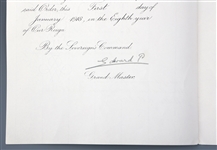 said Order, this First day of
January 1918, in the Eighth year
of Our Reign.
By the Sovereign's Command.
Grand Master.